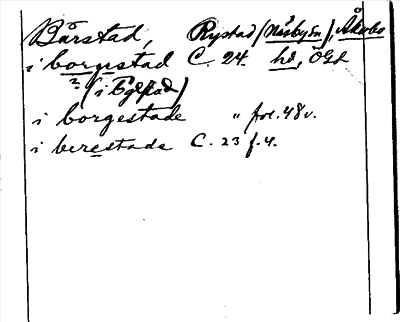 Bärstad, Rystad (Näsbyön), Åkerbo
i borgestad C. 24. hd, Ögl
? (i Egestad)
i borgestade " fol. 48 v.
i berestade C. 23 f. 4.